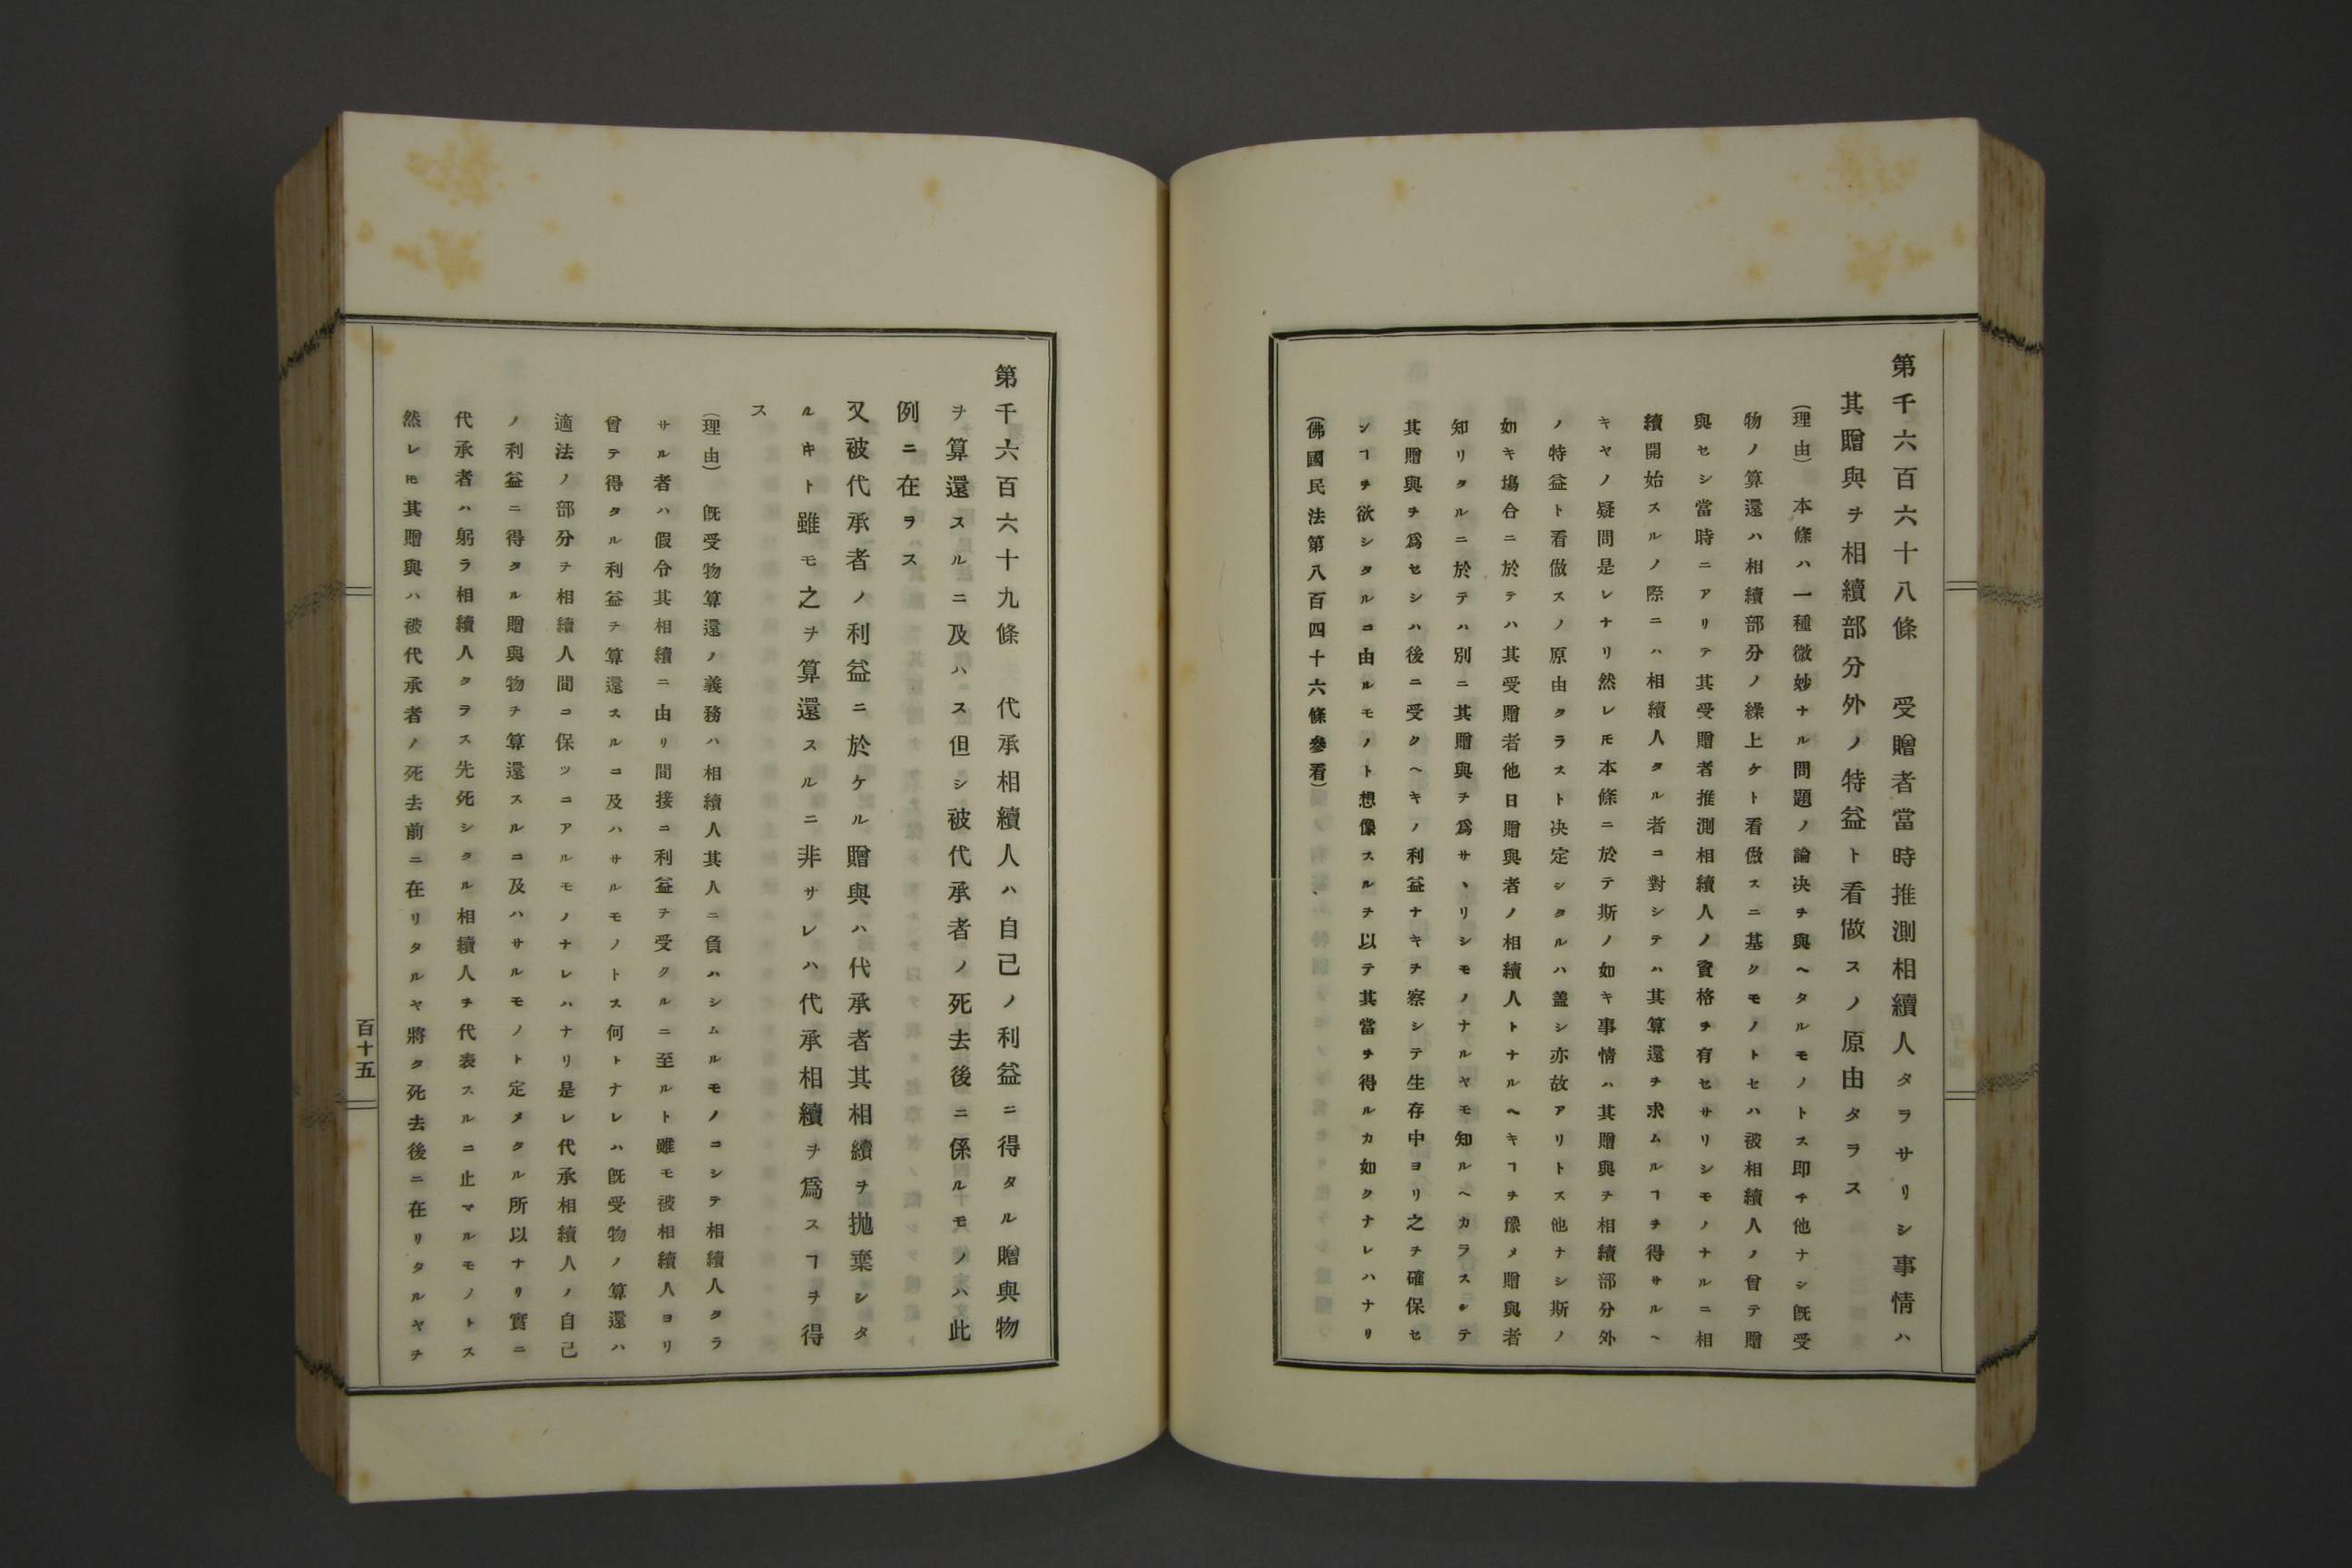 第千六百六十八條　受贈者當時推測相續人タラサリシ事情ハ
其贈與ヲ相續部分外ノ特益ト看做スノ原由タラス
（理由）　本條ハ一種微妙ナル問題ノ論决ヲ與ヘタルモノトス即チ他ナシ既受
物ノ算還ハ相續部分ノ繰上ケト看做スニ基クモノトセハ被相續人ノ曾テ贈
與セシ當時ニアリテ其受贈者推測相續人ノ資格ヲ有セサリシモノナルニ相
續開始スルノ際ニハ相續人タル者ニ對シテハ其算還ヲ求ムルヿヲ得サルヘ
キヤノ疑問是レナリ然レ𪜈本條ニ於テ斯ノ如キ事情ハ其贈與ヲ相續部分外
ノ特益ト看做スノ原由タラスト决定シタルハ盖シ亦故アリトス他ナシ斯ノ
如キ塲合ニ於テハ其受贈者他日贈與者ノ相續人トナルヘキヿヲ豫メ贈與者
知リタルニ於テハ別ニ其贈與ヲ爲サヽリシモノナルヤモ知ルヘカラスシテ
其贈與ヲ爲セシハ後ニ受クヘキノ利益ナキヲ察シテ生存中ヨリ之ヲ確保セ
シヿヲ欲シタルニ由ルモノト想像スルヲ以テ其當ヲ得ルカ如クナレハナリ
（佛國民法第八百四十六條參看）
第千六百六十九條　代承相續人ハ自己ノ利益ニ得タル贈與物
ヲ算還スルニ及ハス但シ被代承者ノ死去後ニ係ルモノハ此
例ニ在ラス
又被代承者ノ利益ニ於ケル贈與ハ代承者其相續ヲ抛棄シタ
ルキト雖モ之ヲ算還スルニ非サレハ代承相續ヲ爲スヿヲ得
ス
（理由）　既受物算還ノ義務ハ相續人其人ニ負ハシムルモノニシテ相續人タラ
サル者ハ假令其相續ニ由リ間接ニ利益ヲ受クルニ至ルト雖モ被相續人ヨリ
曾テ得タル利益ヲ算還スルニ及ハサルモノトス何トナレハ既受物ノ算還ハ
適法ノ部分ヲ相續人間ニ保ツニアルモノナレハナリ是レ代承相續人ノ自己
ノ利益ニ得タル贈與物ヲ算還スルニ及ハサルモノト定メタル所以ナリ實ニ
代承者ハ躬ラ相續人タラス先死シタル相續人ヲ代表スルニ止マルモノトス
然レ𪜈其贈與ハ被代承者ノ死去前ニ在リタルヤ將タ死去後ニ在リタルヤヲ
百十五